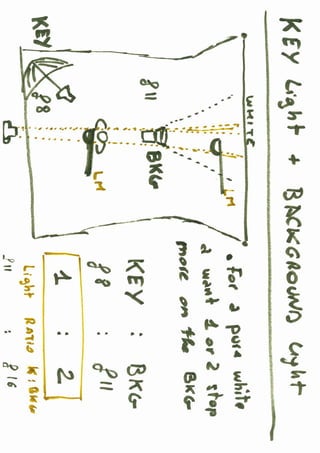 KEY Light + BACKGROUND Light
WHITE
KEY
f8
f11
BKG
LM
LM
• For a pure white
a want 1 or 2 stop
more on the BKG
KEY : BKG
f8 : f11
1 : 2
Light RATIO K:BKG
f11 : f16